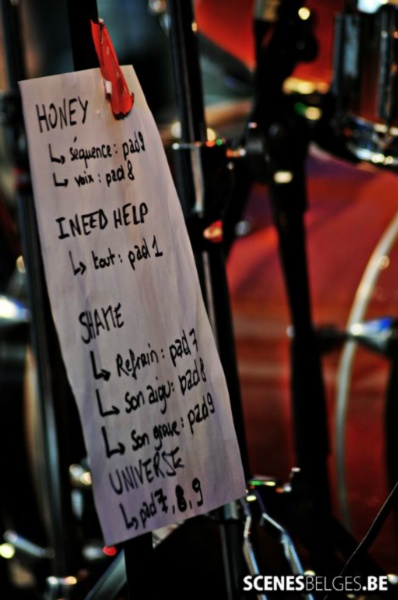 HONEY
↳ séquence : pad 9
↳ voix : pad 8
I NEED HELP
↳ tout : pad 1
SHAME
↳ Refrain : pad 7
↳ son aigu : pad 8
↳ son grave : pad 9
UNIVERSE
↳ pad 7, 8, 9
SCENESBELGES.BE